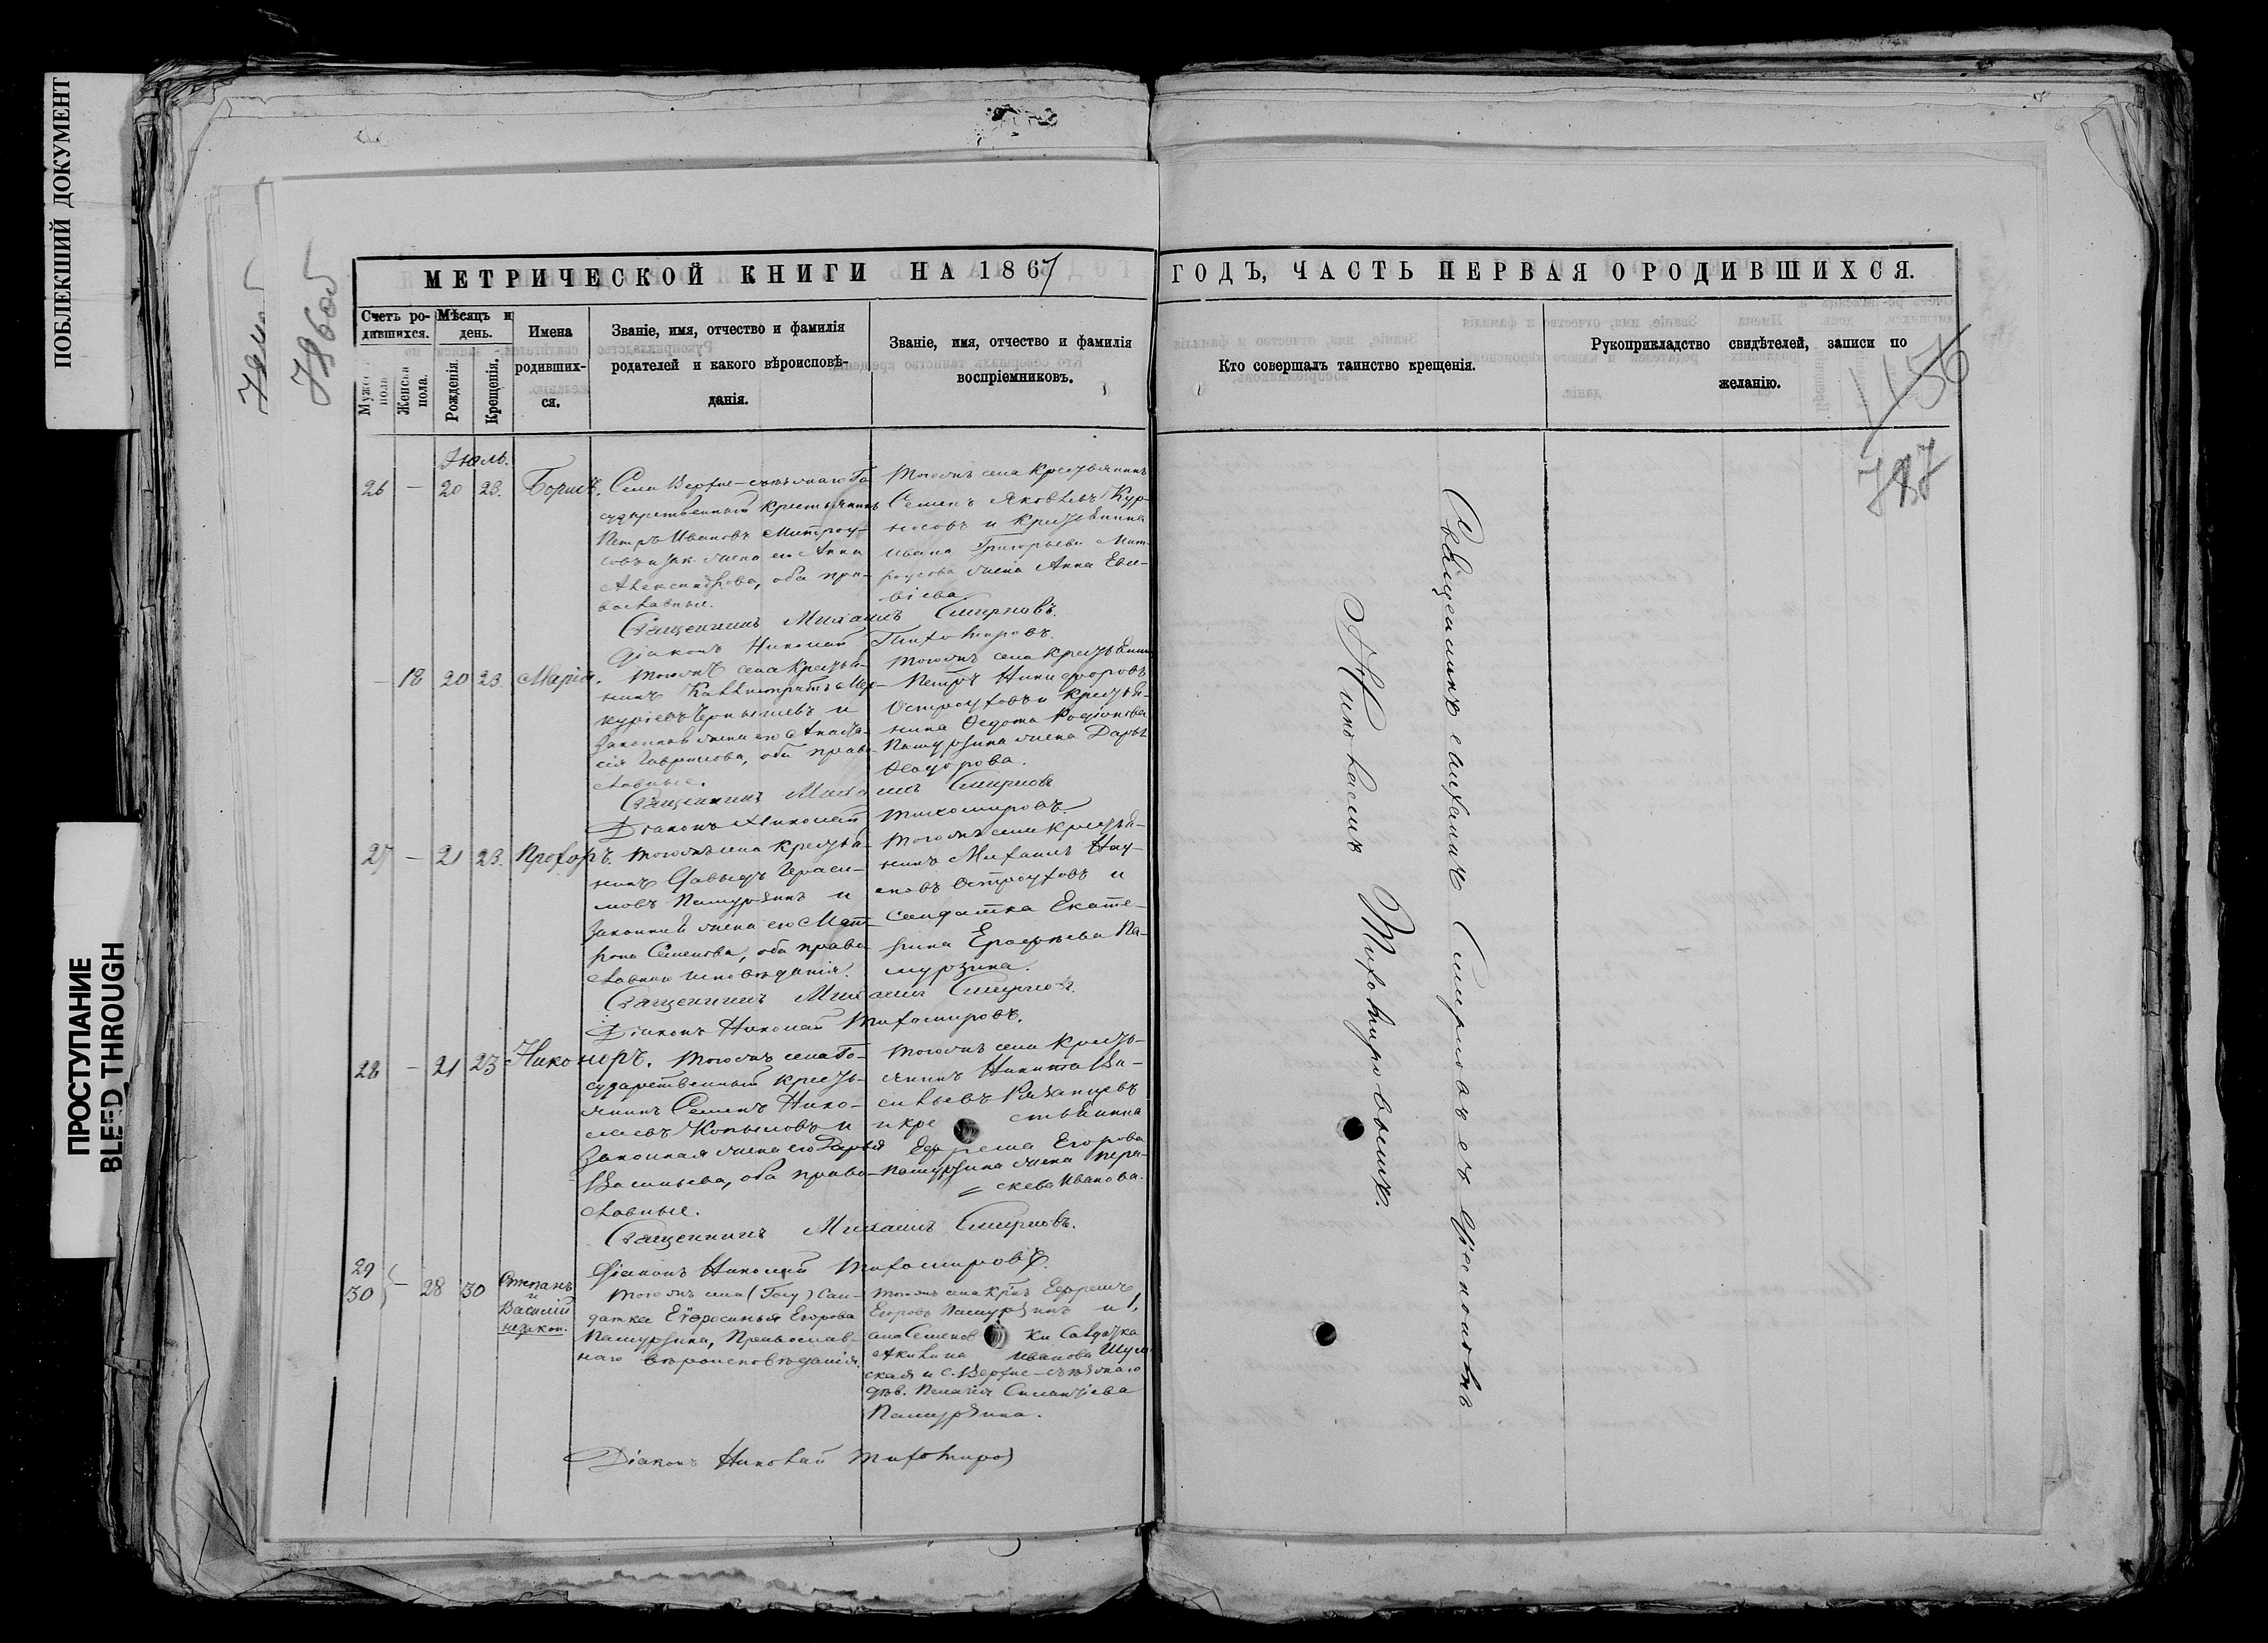 ПОБЛЕКШИЙ ДОКУМЕНТ
ПРОСТУПАНИЕ
BLEED THROUGH
МЕТРИЧЕСКОЙ КНИГИ НА 1867
ГОДЪ, ЧАСТЬ ПЕРВАЯ О РОДИВШИХСЯ.
Счетъ ро-
дившихся.
Мужес
пола
Женска
пола.
Мѣсяцъ и
день.
Рожденія.
Крещенія.
Имена
родивших-
ся.
Званіе, имя, отчество и фамилія
родителей и какого вѣроисповѣ-
данія.
Званіе, имя, отчество и фамилія
воспріемниковъ.
Кто совершалъ таинство крещенія.
Рукоприкладство свидѣтелей, записи по
желанію.
1156
787
Іюль.
26 — 20 23. Борисъ.
Села Верхне-
сударственный крестьянинъ
Петръ Ивановъ Митроу-
совъ и зак. жена его Анна
Александрова, оба пра-
вославные.
Тогожъ села крестьянинъ
Семенъ Яковлевъ Кур-
носовъ и крестьянина
Ивана Григорьева Мит-
роусова жена Анна Евсе-
віева.
Священникъ Михаилъ Смирновъ.
Діаконъ Николай Тихомировъ.
— 18 20 23. Марія.
Тогожъ села крестья-
нинъ Каллистратъ Мер-
куріевъ Чернышевъ и
законная жена его Анаста-
сія Гаврилова, оба право-
славные.
Тогожъ села крестьянинъ
Петръ Никифоровъ
Остроуховъ и крестья-
нина Федота Родіонова
Пашурзина жена Дарья
Федорова.
Священникъ Михаилъ Смирновъ
Діаконъ Николай Тихомировъ.
27 — 21 23. Прохоръ.
Тогожъ села крестья-
нинъ Давыдъ Гераси-
мовъ Пашурзинъ и
законная жена его Мат-
рона Семенова, оба право-
славнаго исповѣданія.
Тогожъ села крестья-
нинъ Михаилъ Нау-
мовъ Остроуховъ и
солдатка Екате-
рина Ерофеева Па-
шурзина.
Священникъ Михаилъ Смирновъ.
Діаконъ Николай Тихомировъ.
28 — 21 23 Никоноръ.
Тогожъ села Го-
сударственный кресть-
янинъ Семенъ Нико-
лаевъ Копыловъ и
законная жена его Дарья
Васильева, оба право-
славные.
Тогожъ села кресть-
янинъ Никита Ва-
сильевъ Казанцевъ
и кре стьянина
Ефрема Егорова
Пашурзина жена Пера-
скева Иванова.
Священникъ Михаилъ Смирновъ.
Діаконъ Николай Тихомировъ.
29
30 — 28 30 Степанъ
и
Василій
незакон.
Тогожъ села (Госу) Сол-
датка Ефросинья Егорова
Пашурзина, Православ-
наго вѣроисповѣданія.
Тогожъ села кр-нъ Ефремъ
Егоровъ Пашурзинъ и
ки Солдатка
Акилина Иванова Шум
ская и с. Верхне-
дѣв. Пелагія Силантіева
Пашурзина.
Діаконъ Николай Тихомиров
Священникъ Михаилъ Смирновъ съ Діакономъ
Николаемъ Тихомировымъ.